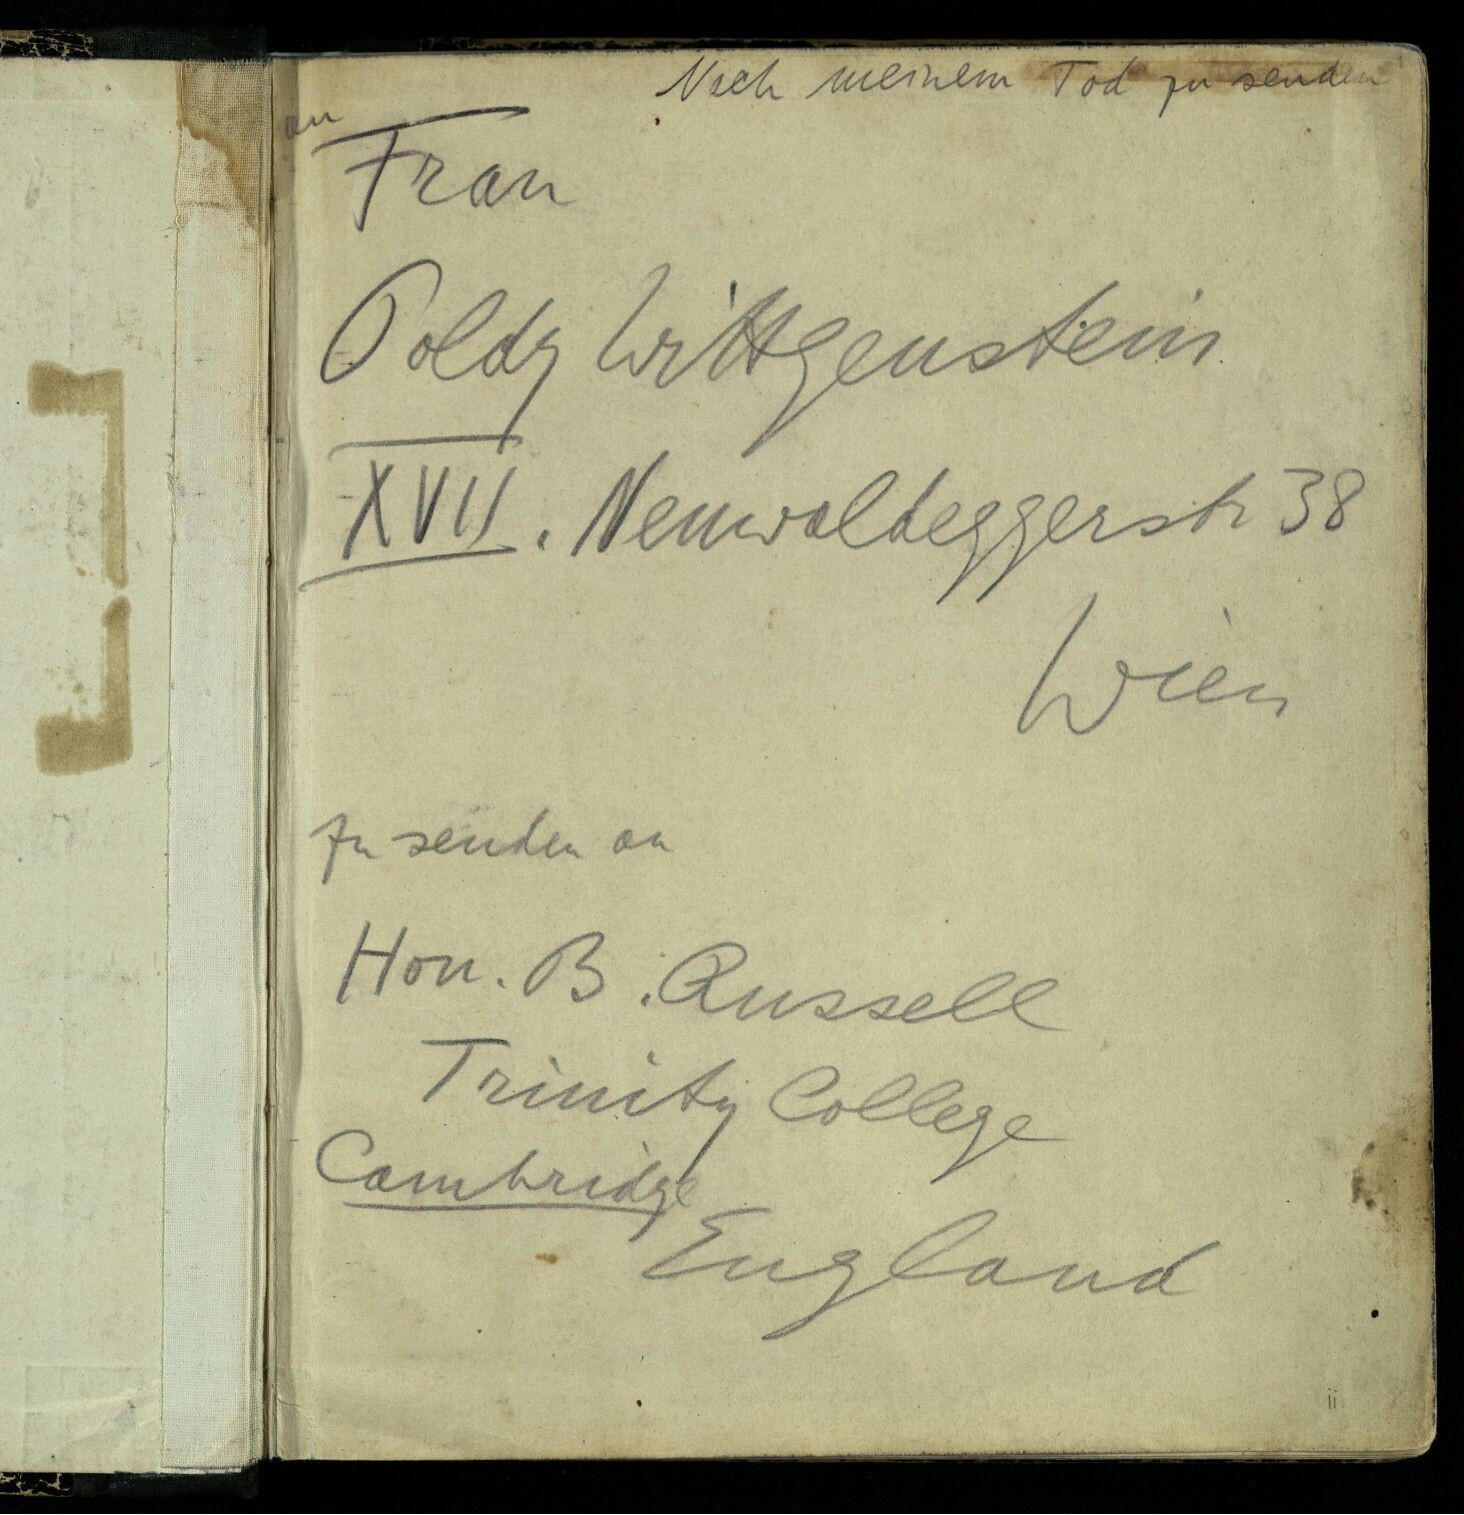 Nach meinem Tod zu senden
an
Frau
Poldy Wittgenstein
XVII. Neuwaldeggerstr 38
Wien
zu senden an
Hon. B. Russell
Trinity College
Cambridge
England
ii